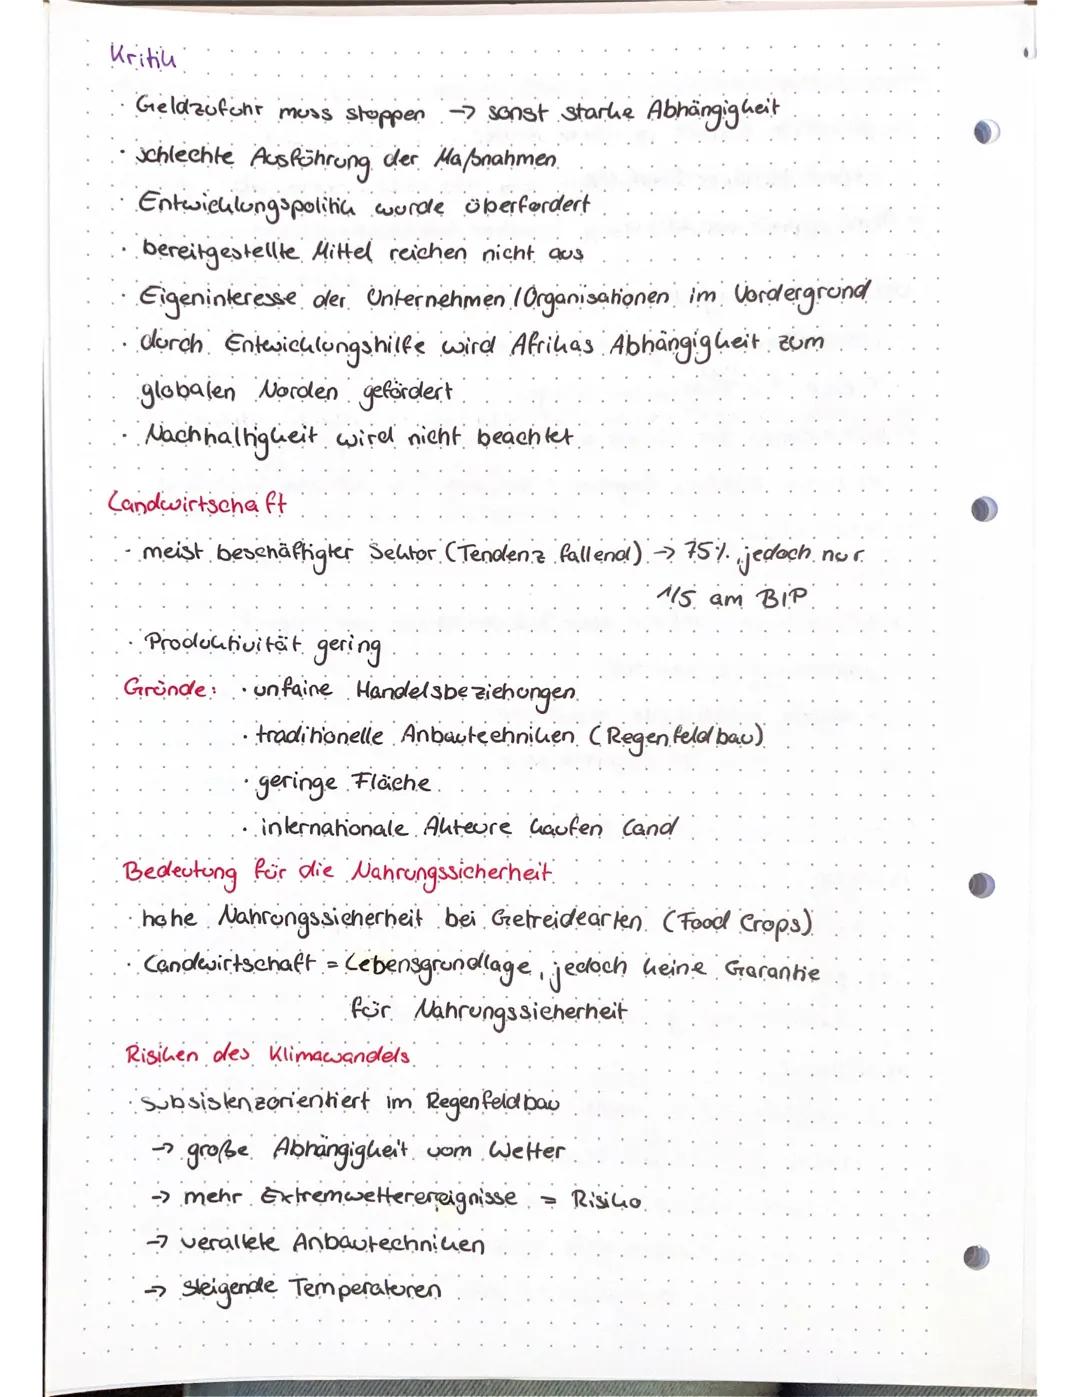 Kritik
· Geldzufuhr muss stoppen → sonst starke Abhängigkeit
· schlechte Ausführung der Maßnahmen
· Entwicklungspolitik wurde überfordert
· bereitgestellte Mittel reichen nicht aus
· Eigeninteresse der Unternehmen / Organisationen im Vordergrund
· durch Entwicklungshilfe wird Afrikas Abhängigkeit zum
globalen Norden gefördert
· Nachhaltigkeit wird nicht beachtet
Landwirtschaft
· meist beschäftigter Sektor (Tendenz fallend) → 75%, jedoch nur
1/5 am BIP
· Produktivität gering
Gründe: · unfaire Handelsbeziehungen
· traditionelle Anbautechniken (Regenfeldbau)
· geringe Fläche
· internationale Akteure kaufen Land
Bedeutung für die Nahrungssicherheit
· hohe Nahrungssicherheit bei Getreidearten (Food Crops)
· Landwirtschaft = Lebensgrundlage, jedoch keine Garantie
für Nahrungssicherheit
Risiken des Klimawandels
· subsistenzorientiert im Regenfeldbau
→ große Abhängigkeit vom Wetter
→ mehr Extremwetterereignisse = Risiko
→ veraltete Anbautechniken
→ steigende Temperaturen